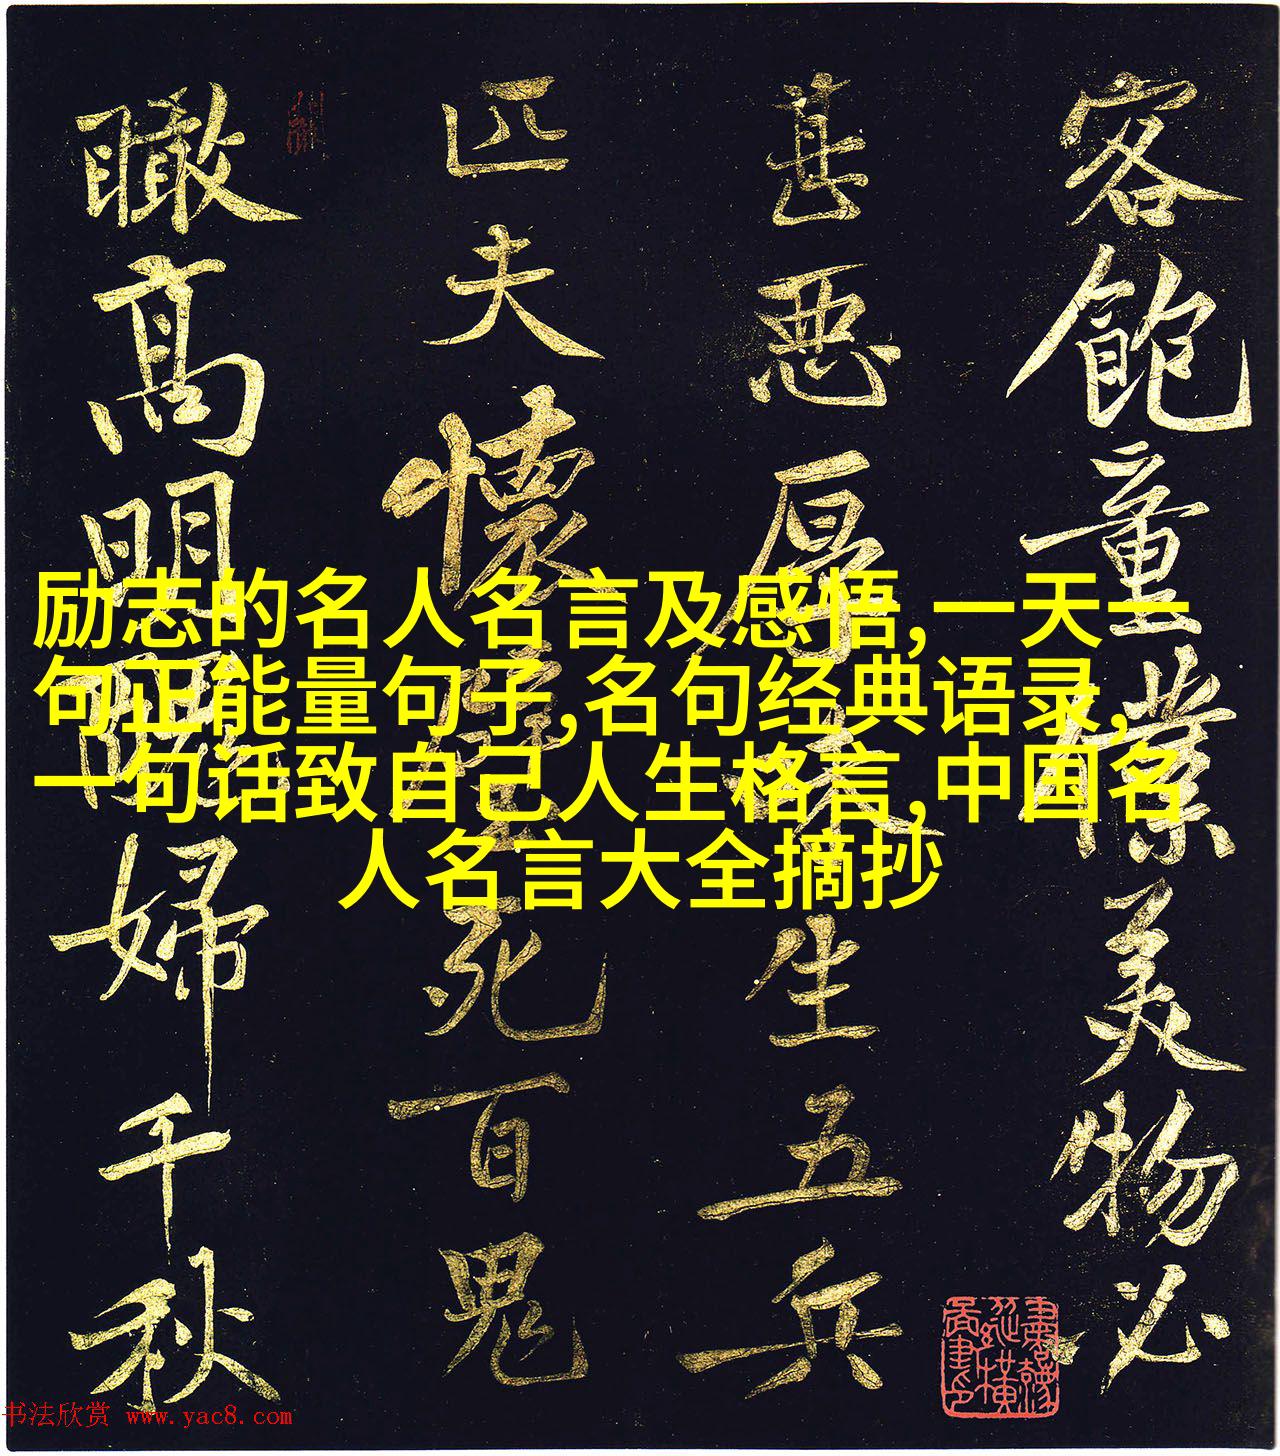 客飽童僕美物必
甚惡厚味生五兵
匹夫懷璧死百鬼
瞰高明醜婦千秋
励志的名人名言及感悟,一天一
句正能量句子,名句经典语录,
一句话致自己人生格言,中国名
人名言大全摘抄
书法欣赏 www.yac8.com